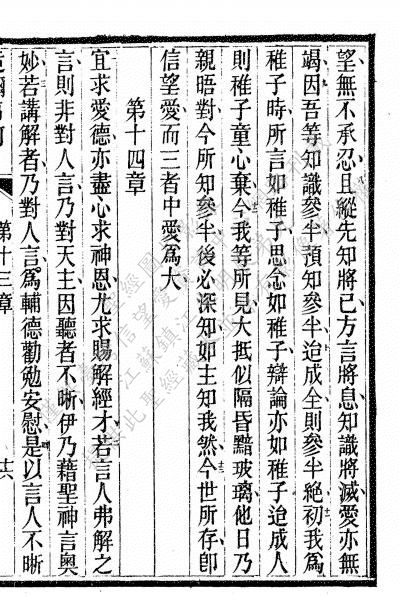 望無不承忍且縱先知將已方言將息知識將滅愛亦無
竭因吾等知識參半預知參半迨成全則參半絕初我為
稚子時所言如稚子思念如稚子辯論亦如稚子迨成人
則稚子童心棄今我等所見大抵似隔昏黯玻璃他日乃
親晤對今所知參半後必深知如主知我然今世所存卽
信望愛而三者中愛爲大
第十四章
宜求愛德亦盡心求神恩尤求賜解經才若言人弗解之
言則非對人言乃對天主因聽者不晰伊乃藉聖神言奥
妙若講解者乃對人言爲輔德勸勉安慰是以言人不晰
第十三章